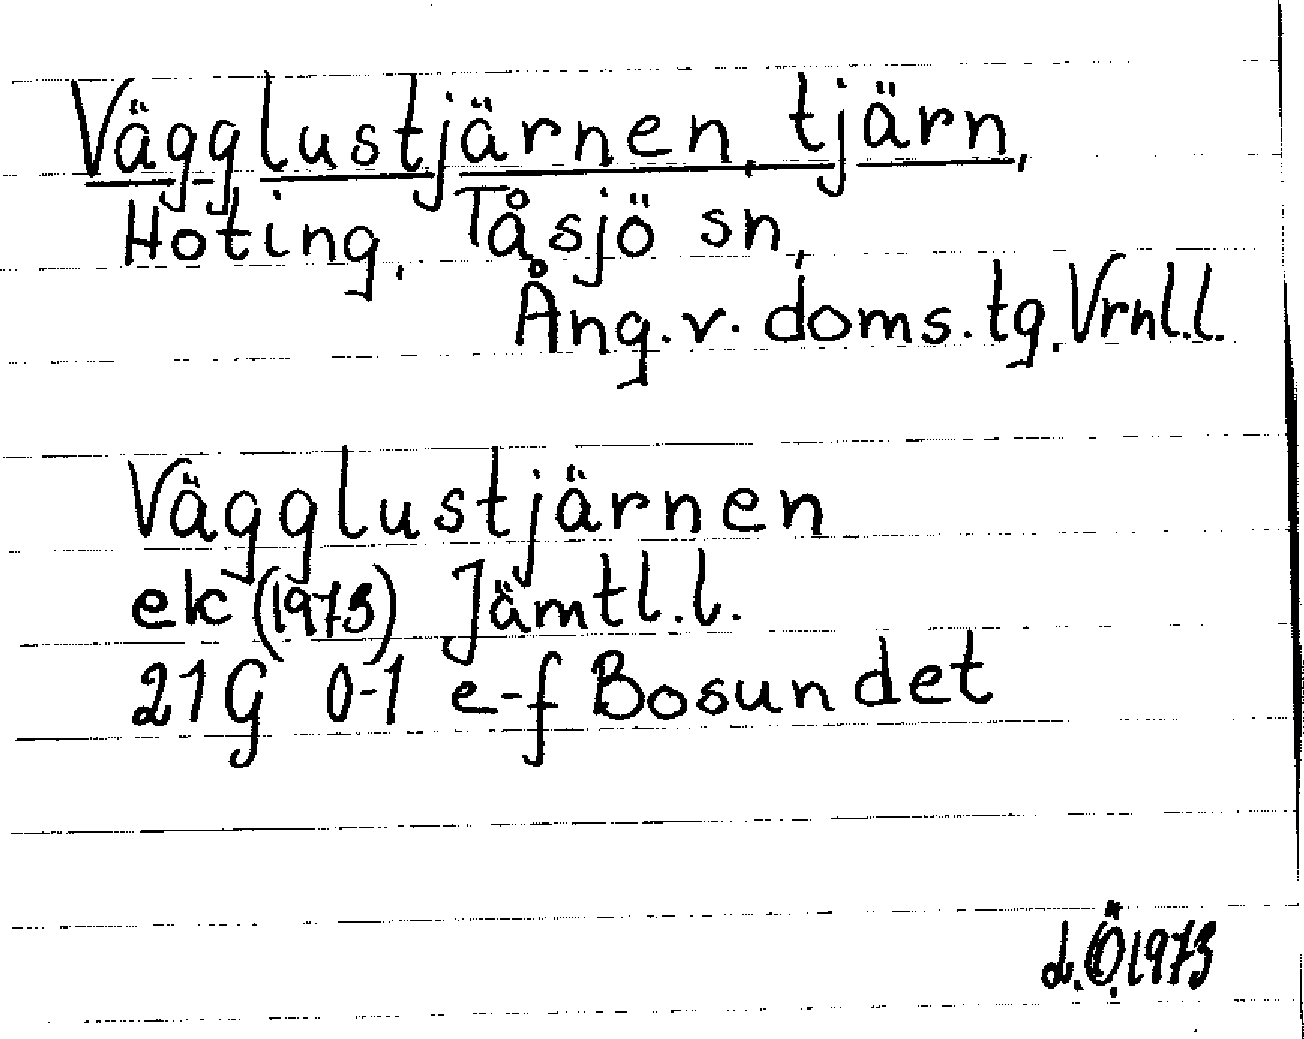 Vägglustjärnen, tjärn,
Hoting, Tåsjö sn,
Ång.v. doms.tg. Vrnl.l.
Vägglustjärnen
ek (1973) Jämtl.l.
21G 0-1 e-f Bosundet
L.Ö. 1973